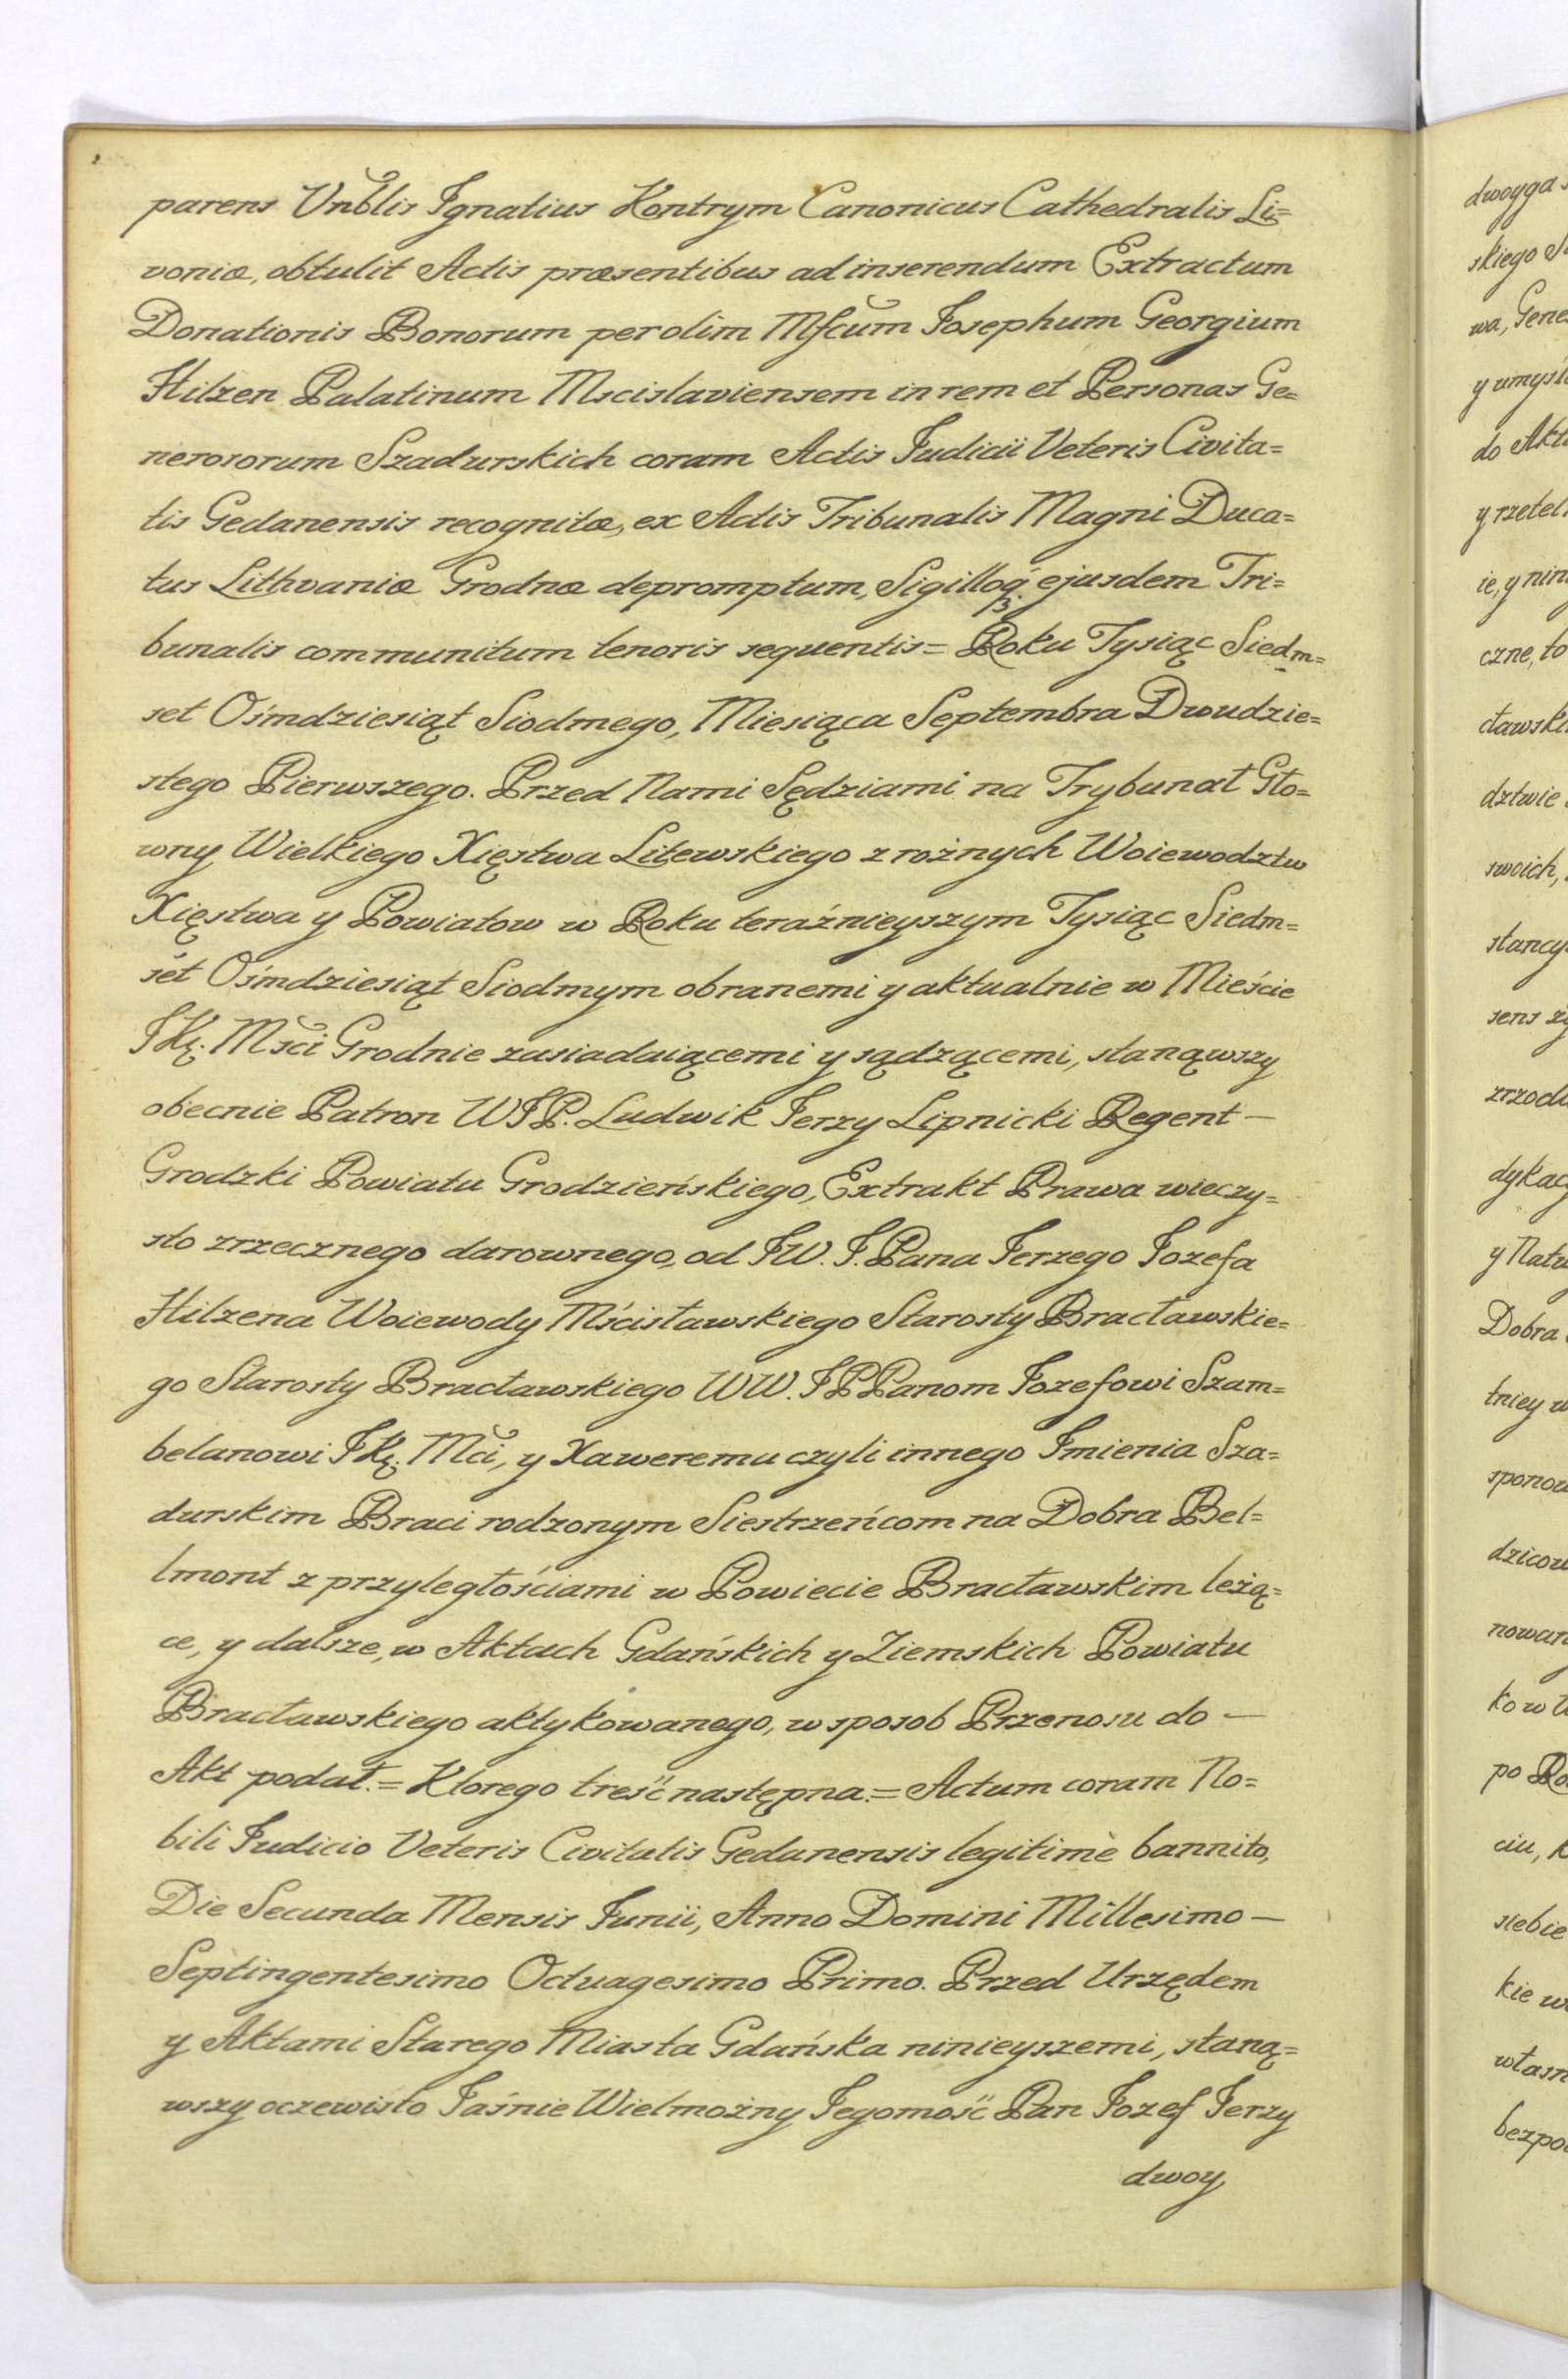 parens Vnblis Ignatius Kontrym Canonicus Cathedralis Li=
voniæ, obtulit Actis præsentibus ad inserendum Extractum
Donationis Bonorum per olim Mfcum Josephum Georgium
Hilzen Palatinum Mscislaviensem in rem et Personas Ge=
nerosorum Szadurskich coram Actis Judicii Veteris Civita=
tis Gedanensis recognitæ, ex Actis Tribunalis Magni Duca=
tus Lithvaniæ Grodnæ depromptum, Sigilloq3 ejusdem Tri=
bunalis communitum tenoris sequentis = Roku Tysiąc Siedm=
set Ośmdziesiąt Siodmego, Miesiąca Septembra Dwudzie=
stego Pierwszego. Przed Nami Sędziami na Trybunał Gło=
wny Wielkiego Xięstwa Litewskiego z rożnych Woiewodztw
Xięstwa y Powiatow w Roku teraźnieyszym Tysiąc Siedm=
set Ośmdziesiąt Siodmym obranemi y aktualnie w Mieście
JKę. Mści Grodnie zasiadaiącemi y sądzącemi, stanąwszy
obecnie Patron WJP. Ludwik Jerzy Lipnicki Regent —
Grodzki Powiatu Grodzieńskiego, Extrakt Prawa wieczy=
sto zrzecznego darownego, od JW. J. Pana Jerzego Jozefa
Hilzena Woiewody Mścisławskiego Starosty Bracławskie=
go Starosty Bracławskiego WW. JPPanom Jozefowi Szam=
belanowi JKę. Mci, y Xaweremu czyli innego Imienia Sza=
durskim Braci rodzonym Siestrzeńcom na Dobra Bel=
lmont z przyległościami w Powiecie Bracławskim leżą=
ce, y dalsze, w Aktach Gdańskich y Ziemskich Powiatu
Bracławskiego aktykowanego, w sposob Przenosu do —
Akt podał. = Ktorego treść następna. = Actum coram No=
bili Judicio Veteris Civitatis Gedanensis legitimè bannito,
Die Secunda Mensis Junii, Anno Domini Millesimo —
Septingentesimo Octuagesimo Primo. Przed Urzędem
y Aktami Starego Miasta Gdańska ninieyszemi, staną=
wszy oczewisto Jaśnie Wielmożny Jegomość Pan Jozef Jerzy
dwoy
dwoyga
skiego
wa, Gene
y umysł
do Akt
y rzetel
ie, y nin
czne, to
cławski
dztwie
swoich,
stancy
sens
zrzod
dykac
y Natu
Dobra
tniey w
sponow
dzicow
nowan
ko w
po
ciu, k
siebie
kie w
własn
bezpo